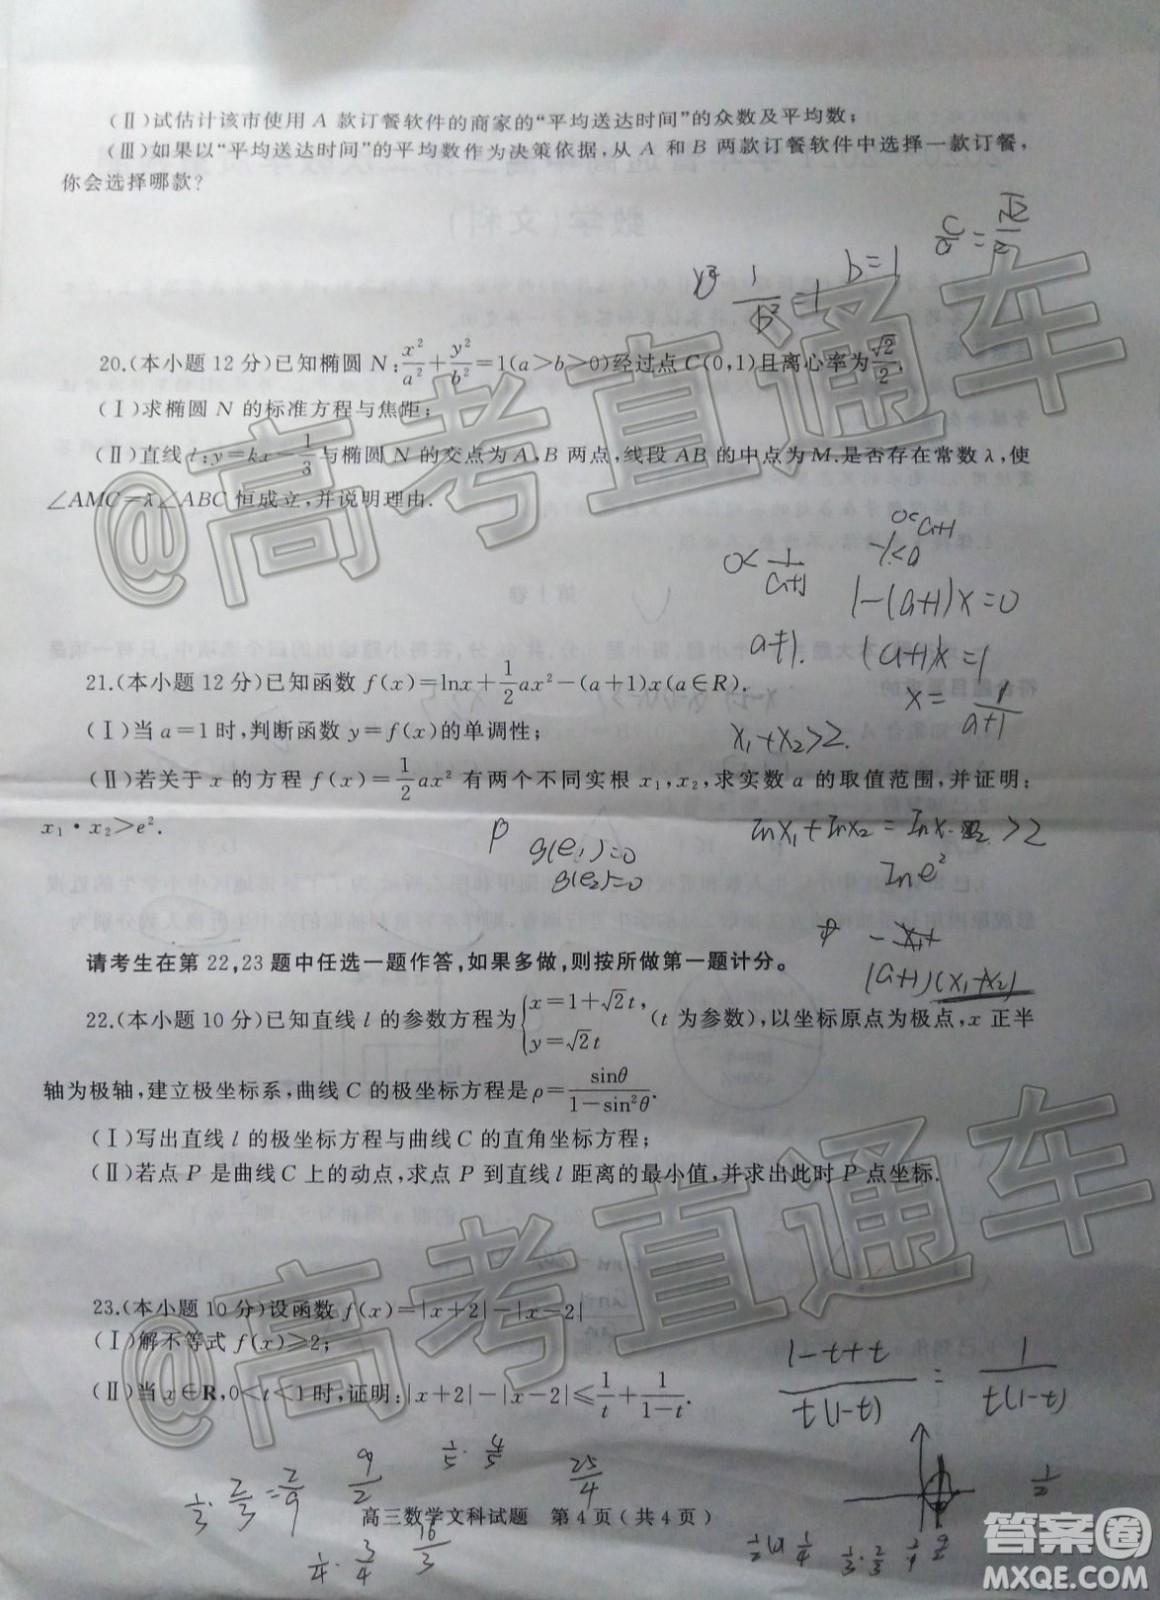 (Ⅱ)试估计该市使用 A 款订餐软件的商家的“平均送达时间”的众数及平均数;
(Ⅲ)如果以“平均送达时间”的平均数作为决策依据,从 A 和 B 两款订餐软件中选择一款订餐,
你会选择哪款?
b=1
20.(本小题 12 分)已知椭圆 N:x²/a²+y²/b²=1(a>b>0)经过点 C(0,1)且离心率为√2/2.
(Ⅰ)求椭圆 N 的标准方程与焦距;
(Ⅱ)直线 l:y=kx-1/3与椭圆 N 的交点为 A,B 两点,线段 AB 的中点为 M.是否存在常数 λ,使
∠AMC=λ∠ABC 恒成立,并说明理由.
0<1/(a+1)
1-(a+1)x=0
(a+1)x=1
x=1/(a+1)
21.(本小题 12 分)已知函数 f(x)=lnx+1/2ax²-(a+1)x(a∈R).
(Ⅰ)当 a=1 时,判断函数 y=f(x)的单调性;
x₁+x₂>2
(Ⅱ)若关于 x 的方程 f(x)=1/2ax² 有两个不同实根 x₁,x₂,求实数 a 的取值范围,并证明:
x₁·x₂>e².
g(e₁)=0
g(e₂)=0
lne²
请考生在第 22,23 题中任选一题作答,如果多做,则按所做第一题计分。
(a+1)(x₁+x₂)
22.(本小题 10 分)已知直线 l 的参数方程为{x=1+√2t, y=√2t (t 为参数),以坐标原点为极点,x 正半
轴为极轴,建立极坐标系,曲线 C 的极坐标方程是 ρ=sinθ/(1-sin²θ).
(Ⅰ)写出直线 l 的极坐标方程与曲线 C 的直角坐标方程;
(Ⅱ)若点 P 是曲线 C 上的动点,求点 P 到直线 l 距离的最小值,并求出此时 P 点坐标.
23.(本小题 10 分)设函数 f(x)=|x+2|-|x-2|
(Ⅰ)解不等式 f(x)≥2;
(Ⅱ)当 x∈R,0<t<1 时,证明:|x+2|-|x-2|≤1/t+1/(1-t).
(1-t+t)/(t(1-t)) = 1/(t(1-t))
1/3·2/3=2/9
9/2
1/5·4/5
25/4
1/2
高三数学文科试题 第 4 页(共 4 页)
1/4·3/4
16/3
@高考直通车
@高考直通车
答案圈
MXQE.COM